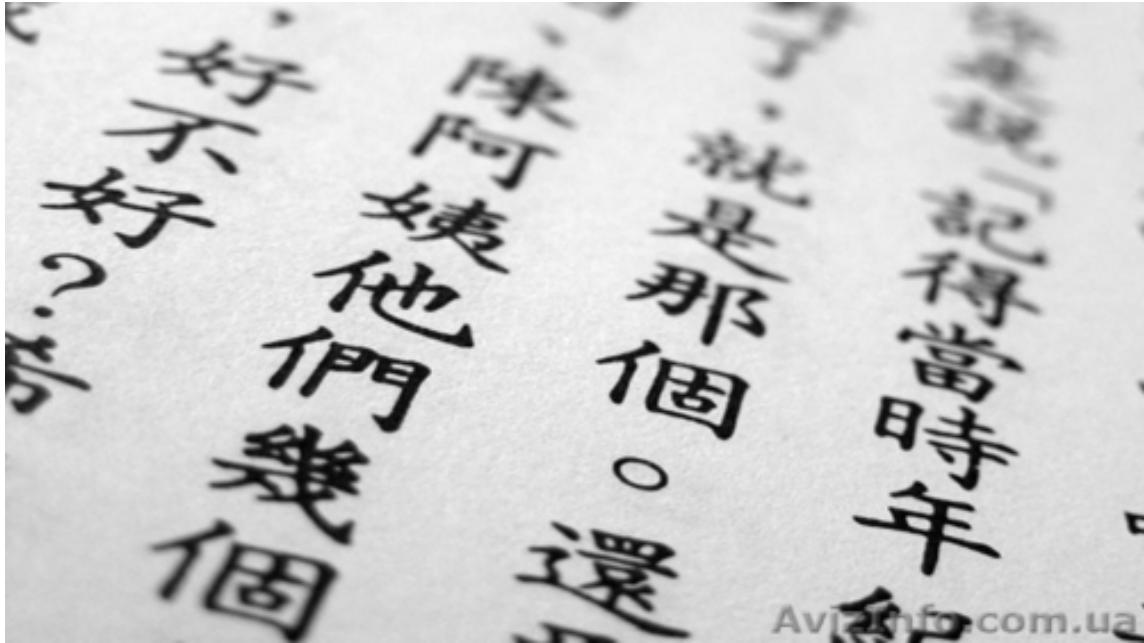 你是說「記得當時年紀
了，就是那個。還
、陳阿姨他們幾個
，好不好？希
AviaInfo.com.ua